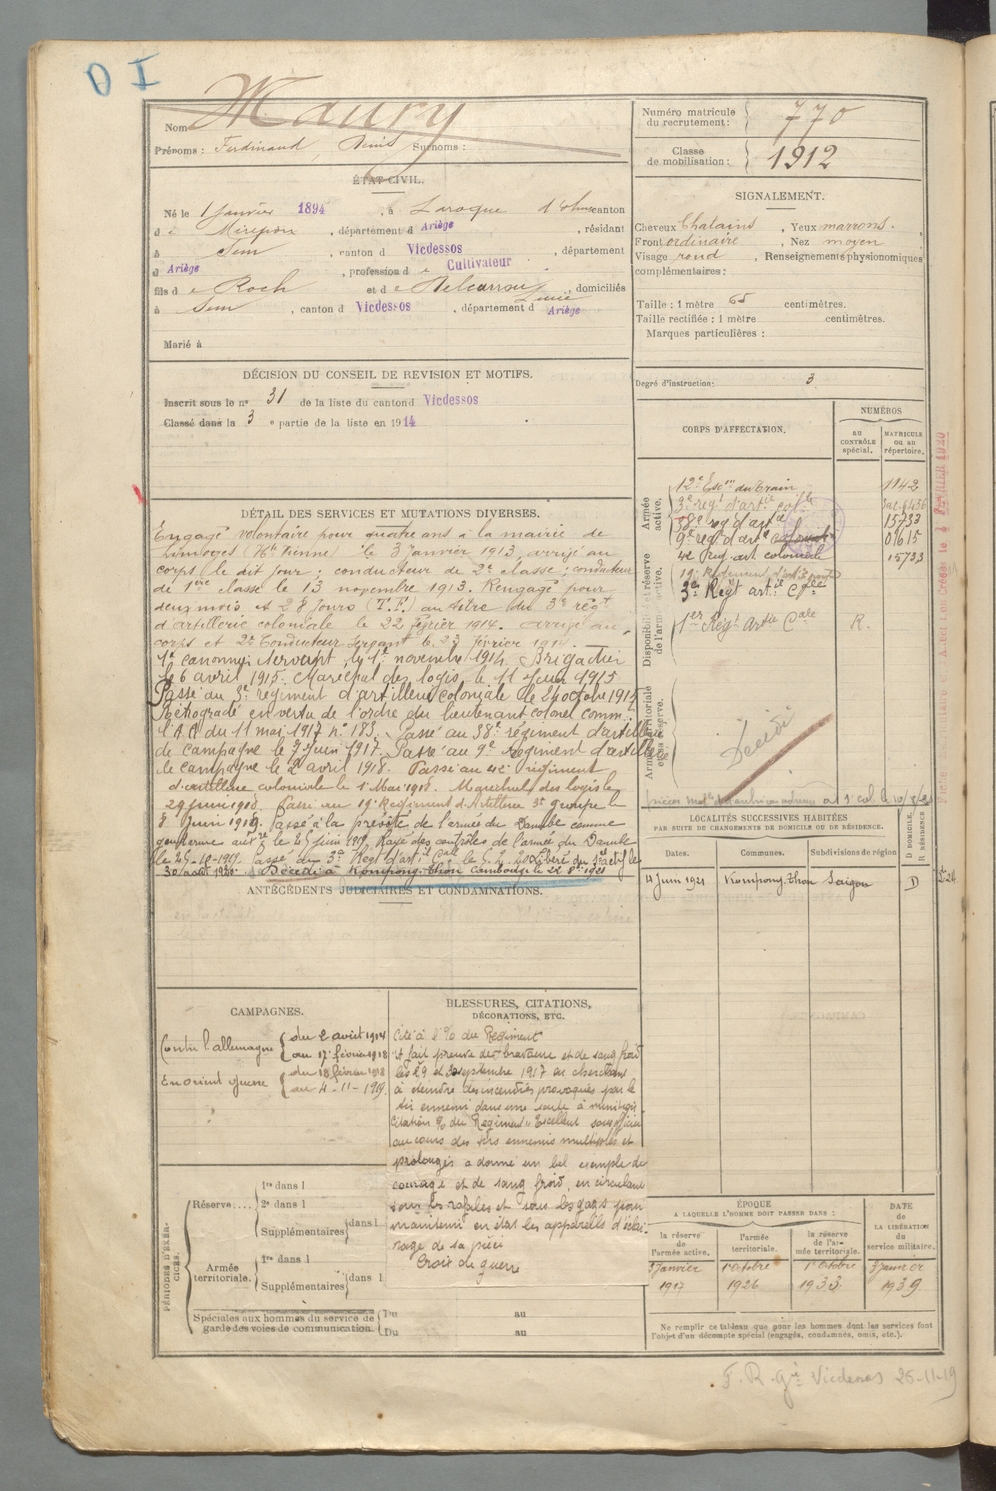 I D
Nom Maury
Prénoms : Ferdinand, Denis Surnoms :
ÉTAT CIVIL.
Né le 1 Janvier 1894, à Laroque d'Olmes canton
de Mirepoix, département d Ariège, résidant
à Sem, canton d Vicdessos, département
d Ariège, profession de Cultivateur
fils de Roch et de Delcarrou Lucie, domiciliés
à Sem, canton d Vicdessos, département d Ariège
Marié à
DÉCISION DU CONSEIL DE REVISION ET MOTIFS.
Inscrit sous le n° 31 de la liste du canton d Vicdessos
Classé dans la 3 e partie de la liste en 1914
DÉTAIL DES SERVICES ET MUTATIONS DIVERSES.
Engagé volontaire pour quatre ans à la mairie de
Limoges (Hte Vienne) le 3 Janvier 1913, arrivé au
corps le dit jour ; conducteur de 2e classe ; conducteur
de 1ère classe le 13 novembre 1913. Rengagé pour
deux mois et 28 jours (T.F.) au titre du 3e régt
d'artillerie coloniale le 22 février 1914. arrivé au
corps et 2e Conducteur le 23 février 1914.
1er canonnier servant le 1er novembre 1914. Brigadier
le 6 avril 1915. Maréchal des logis le 11 Juin 1915
Passé au 3e régiment d'artillerie coloniale le 24 octobre 1915
Rétrogradé en vertu de l'ordre du lieutenant colonel comm.
l'A.D. du 11 mai 1917 n° 183. Passé au 38e régiment d'artillerie
de campagne le 9 juin 1917. Passé au 9e Régiment d'artillerie
de campagne le 2 avril 1918. Passé au 42e régiment
d'artillerie coloniale le 1er Mai 1918. Maréchal des logis le
29 juin 1918. Passé au 19e Régiment d'Artillerie 3e groupe le
8 Juin 1919. Passé à la prévôté de l'armée du Danube comme
gendarme auxre le 25 juin 1919. Rayé des contrôles de l'armée du Danube
le 25-10-1919. Passé au 3e Régt d'artie Cale le 5.2.20 Libéré du Sce actif le
30 août 1920. Décédé à Kompong-Thom Cambodge le 22 8bre 1921
ANTÉCÉDENTS JUDICIAIRES ET CONDAMNATIONS.
CAMPAGNES.
Contre l'allemagne { du 2 août 1914
au 17 février 1918
En orient guerre { du 18 février 1918
au 4-11-1919.
BLESSURES, CITATIONS,
DÉCORATIONS, ETC.
Cité à l'O/ du Régiment
a fait preuve de bravoure et de sang froid
les 29 et 30 septembre 1917 en cherchant
à éteindre des incendies provoqués par le
tir ennemi dans une soute à munitions
Citation O/ du Régiment Excellent sous officier
au cours des tirs ennemis multiples et
prolongés a donné un bel exemple de
courage et de sang froid, en circulant
sous les rafales et sous les gaz pour
maintenir en état les appareils d'éclai-
rage de sa pièce
Croix de guerre
PÉRIODES D'EXERCICES.
Réserve.... { 1re dans l
2e dans l
Supplémentaires { dans l
Armée territoriale. { 1re dans l
Supplémentaires { dans l
Spéciales aux hommes du service de
garde des voies de communication. { Du au
Du au
Numéro matricule
du recrutement : } 770
Classe
de mobilisation : } 1912
SIGNALEMENT.
Cheveux Chatains, Yeux marrons.
Front ordinaire, Nez moyen
Visage rond, Renseignements physionomiques
complémentaires :
Taille : 1 mètre 65 centimètres.
Taille rectifiée : 1 mètre centimètres.
Marques particulières :
Degré d'instruction : 3
CORPS D'AFFECTATION.
NUMÉROS
AU CONTRÔLE spécial.
MATRICULE ou au répertoire.
Armée active.
12e Escon du Train 1142
3e régt d'artie cole
38e reg d'artie 15733
9e reg d'arte 01615
42 Reg. art coloniale 15733
Disponibilité et réserve de l'armée active.
19e Régiment d'artie
3e Régt artie Cole
1er Régt Artie Cale R.
Armée territoriale et sa réserve.
Décédé
LOCALITÉS SUCCESSIVES HABITÉES
PAR SUITE DE CHANGEMENTS DE DOMICILE OU DE RÉSIDENCE.
Dates. Communes. Subdivisions de région D DOMICILE, R RÉSIDENCE
4 Juin 1921 Kompong-Thom Saïgon D
ÉPOQUE
A LAQUELLE L'HOMME DOIT PASSER DANS :
la réserve de l'armée active.
l'armée territoriale.
la réserve de l'armée territoriale.
DATE de LA LIBÉRATION du service militaire.
3 Janvier 1917
1 octobre 1926
1 octobre 1933
3 Janvier 1939
Ne remplir ce tableau que pour les hommes dont les services font
l'objet d'un décompte spécial (engagés, condamnés, omis, etc.).
Vicdessos 25-11-19